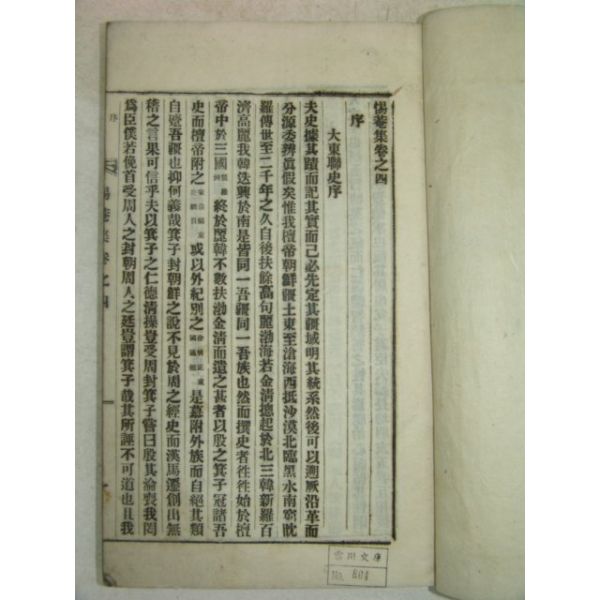 惕菴集卷之四
序
大東聯史序
夫史據其蹟而記其實而己必先定其疆域明其統系然後可以溯厥沿革而
分源委辨眞假矣惟我檀帝朝鮮疆土東至滄海西抵沙漠北臨黑水南
羅傳世至二千年之久自後扶餘高句麗渤海若金淸摠起於北三韓新羅百
濟高麗我韓迭興於南是皆同一吾疆同一吾族也然而撰史者徃徃始於檀
帝中於三國 終於麗韓不數扶渤金淸而遺之甚者以殷之箕子冠諸吾
史而檀帝附之 或以外紀別之 是慕附外族而自絕其類
自蹙吾疆也抑何義哉箕子封朝鮮之說不見於周之經史而漢馬遷創出無
稽之言果可信乎夫以箕子之仁德淸操豈受周封箕子嘗曰殷其淪喪我罔
爲臣僕若俛首受周人之封朝周人之廷豈謂箕子哉其所誣不可道也且我
序
惕菴集卷之四
一
雲川文庫
No. 804